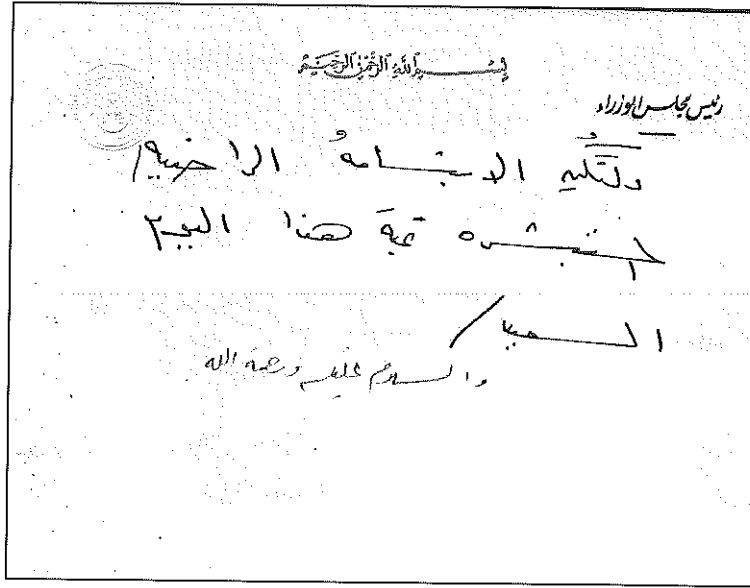 بسم الله الرحمن الرحيم
رئيس مجلس الوزراء
ولتكن الابتسامةُ الراضية
المستبشرة تحية هذا اليوم
السعيد
والسلام عليكم ورحمة الله